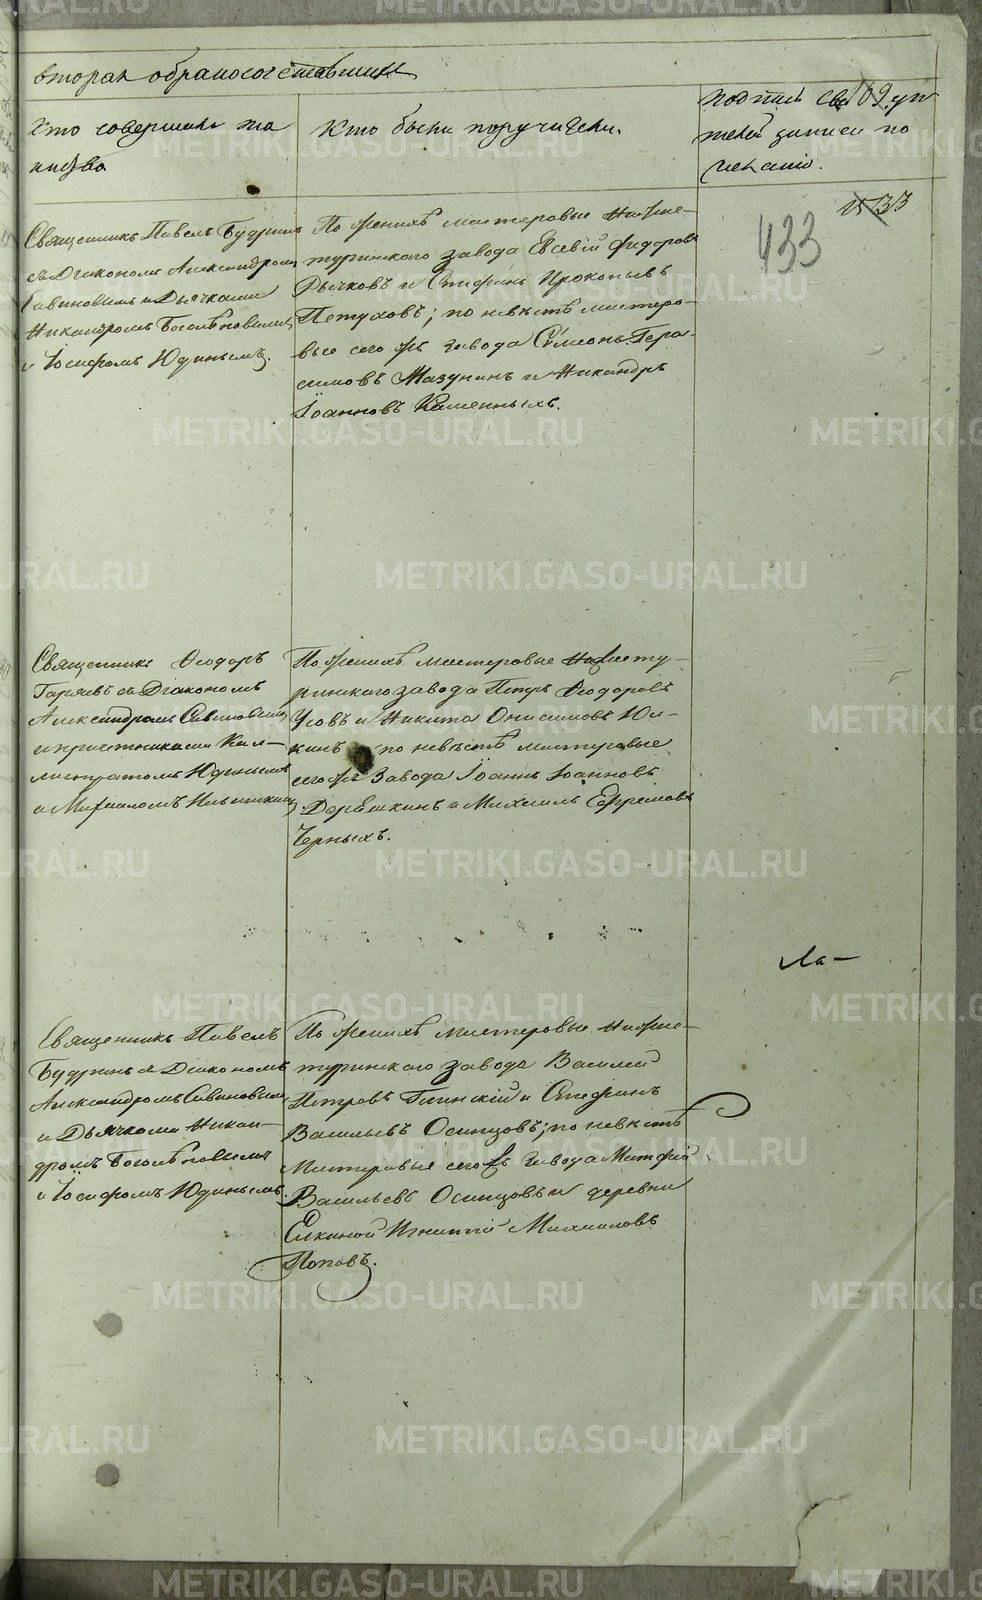 вторая о бракосочетавшихся
Кто совершалъ та
инство
Кто были поручители.
подпись сви
телей записи по
желанію.
109
433
Священникъ Павелъ Будринъ
съ Діакономъ Александромъ
Савиновымъ и Дьячками
Никандромъ Боголѣповымъ,
и Іосифомъ Юдинымъ.
По женихѣ мастеровые Нижне-
туринскаго завода Евсевій Федоровъ
Рычковъ и Стефанъ Прокопьевъ
Петуховъ; по невѣстѣ мастеро-
вые сего жъ завода Симеонъ Гера-
симовъ Мазунинъ и Никандръ
Іоанновъ Каменныхъ.
Священникъ Ѳеодоръ
съ Діакономъ
Александромъ Савиновымъ
и причетниками Кал-
листратомъ Юдинымъ
и Михаиломъ
По женихѣ мастеровые Нижнету-
ринскаго завода Петръ Ѳеодоровъ
Усовъ и Никита Онисимовъ Юл-
кинъ по невѣстѣ мастеровые
сего жъ Завода Іоаннъ Іоанновъ
и Михаилъ Ефремовъ
Черныхъ.
Священникъ Павелъ
Будринъ съ Діакономъ
Александромъ Савиновымъ
и Дьячками Никан-
дромъ Боголѣповымъ
и Іосифомъ Юдинымъ.
По женихѣ мастеровые Нижне-
туринскаго завода Василей
Петровъ Глинскій и Стефанъ
Васильевъ Осинцовъ; по невѣстѣ
Мастеровые сего жъ завода Матфей
Васильевъ Осинцовъ и деревни
Елкиной Игнатій Михаиловъ
Поповъ.
METRIKI.GASO-URAL.RU